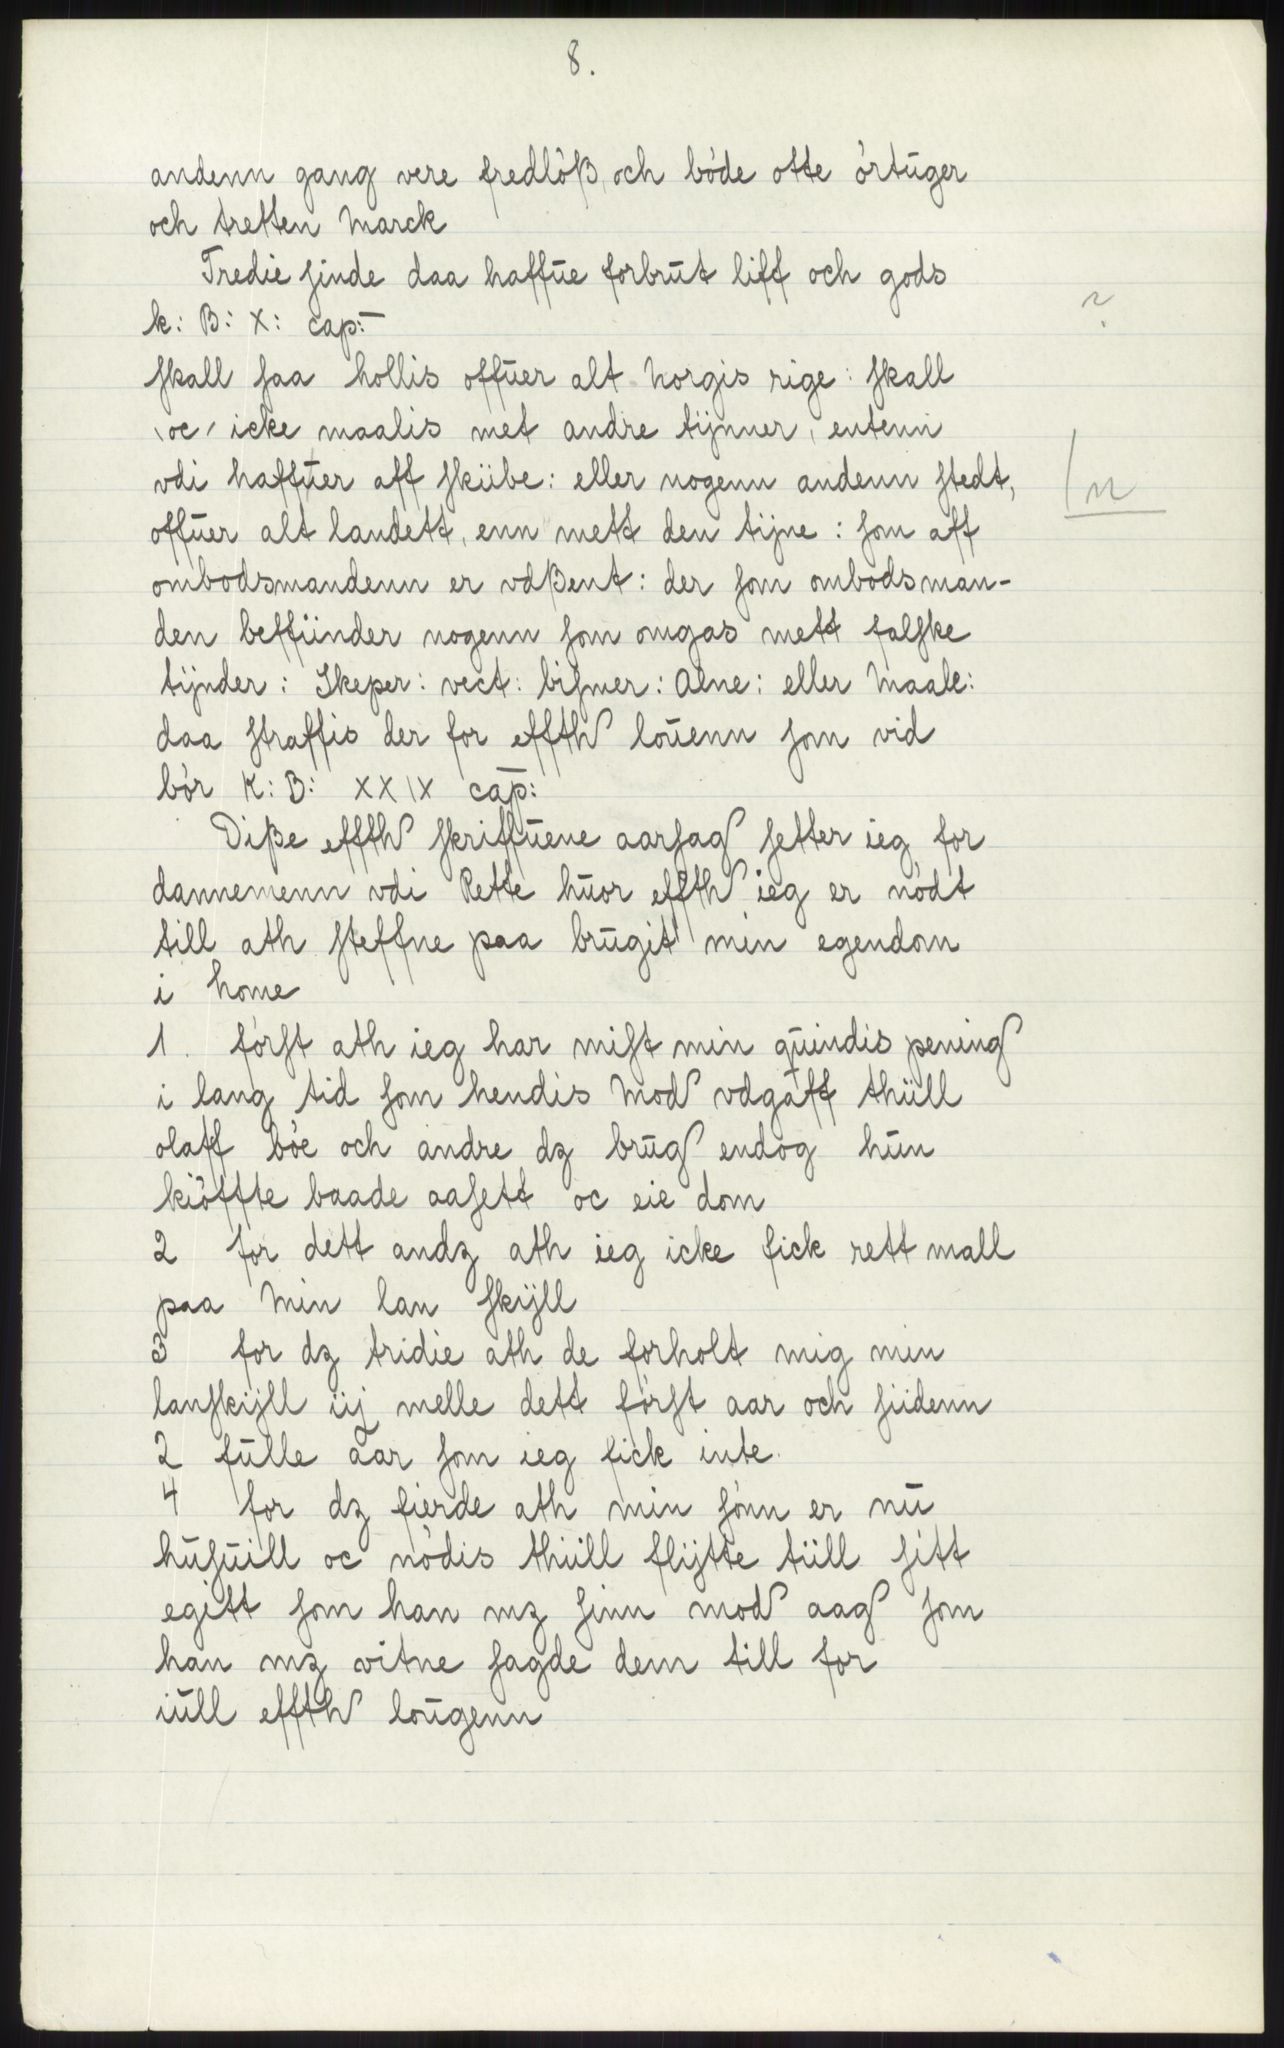 8.
andenn gang vere fredlöß, och böde otte örtūger
och tretten Marck
Tredie sinde daa haffūe forbrūt liff och gods
k: B: X: cap:-
?
skall saa hollis offūer alt Norgis rige: skall
\oc/ icke maalis met andre tijnner, entenn
vdi haffūer aff skiibe: eller nogenn andenn stedt,
n
offūer alt landett, enn mett den tijne: som aff
ombodsmandenn er vdßent: der som ombodsman-
den beffiinder nogenn som omgas mett falske
tijnder: Skeper: vect: bismer: Alne: eller Maale:
daa straffis der for effth loūenn som vid
bör K: B: XXIX cap:
Diße effth skriffūene aarsag setter ieg for
dannemenn vdi Rette hūor effth ieg er nödt
till ath steffne paa brūgit min egendom
i home
1. först ath ieg har mist min qūindis pening
i lang tid som hendis Mod vdgaff thiill
olaff böe och andre dz brūg endog hūn
kiöffte baade aasett oc eie dom
2 for dett andz ath ieg icke fick rett mall
paa Min lan skijll
3 for dz tridie ath de forholt mig min
lanskijll iij melle dett först aar och siidenn
2 fūlle aar som ieg fick inte.
4 for dz fierde ath min sönn er nū
hūsūill oc nödis thiill flijtte tiill sitt
egitt som han mz sinn mod aag som
han mz vitne sagde dem till for
iūll effth loūgenn